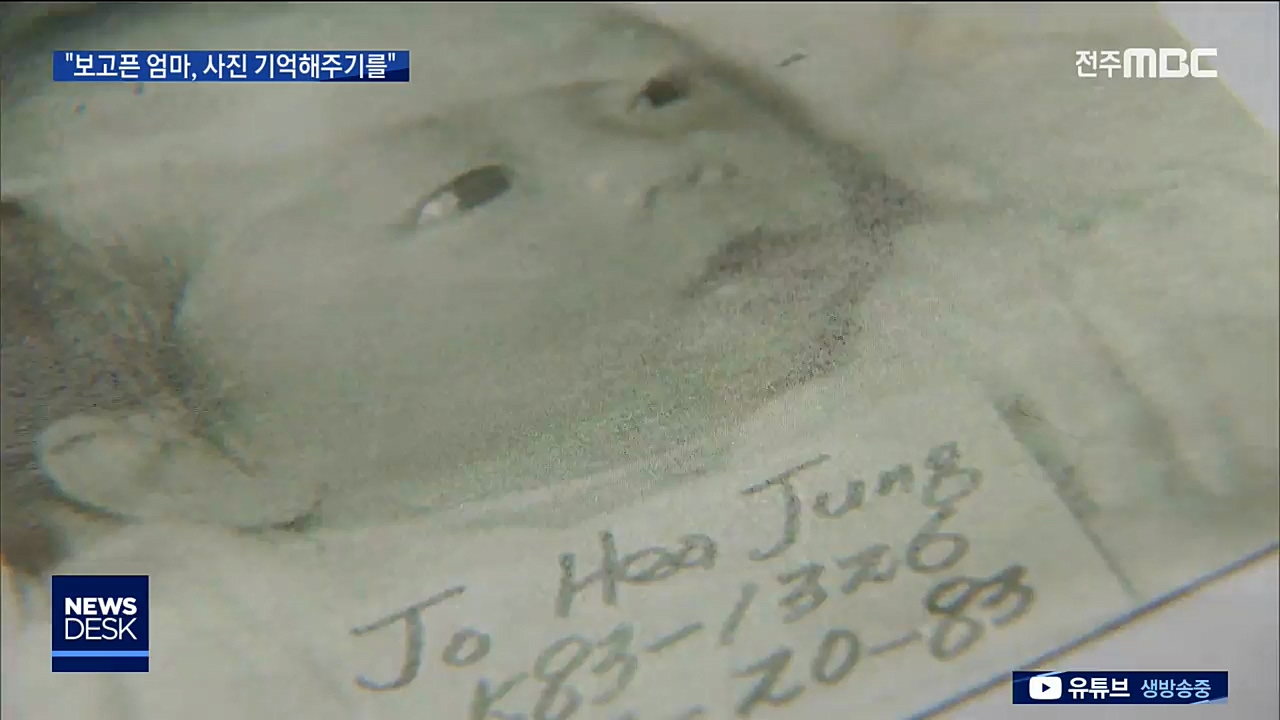 "보고픈 엄마, 사진 기억해주기를"
전주MBC
Jo Hoa Jung
K83-1326
20-83
NEWS
DESK
유튜브 생방송중